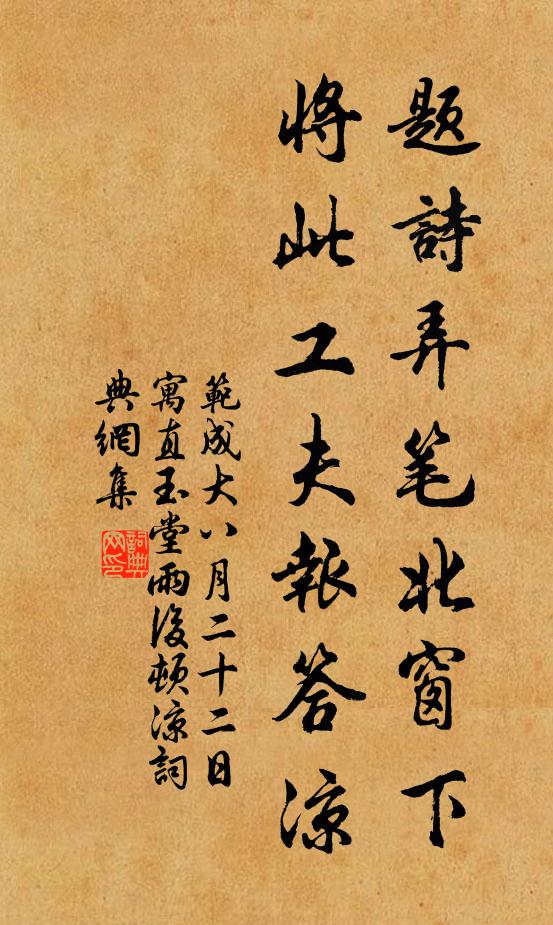 題詩弄笔北窗下
将此工夫報答涼
範成大八月二十二日
寓直玉堂雨後頓涼詞
典網集
詞典
网印